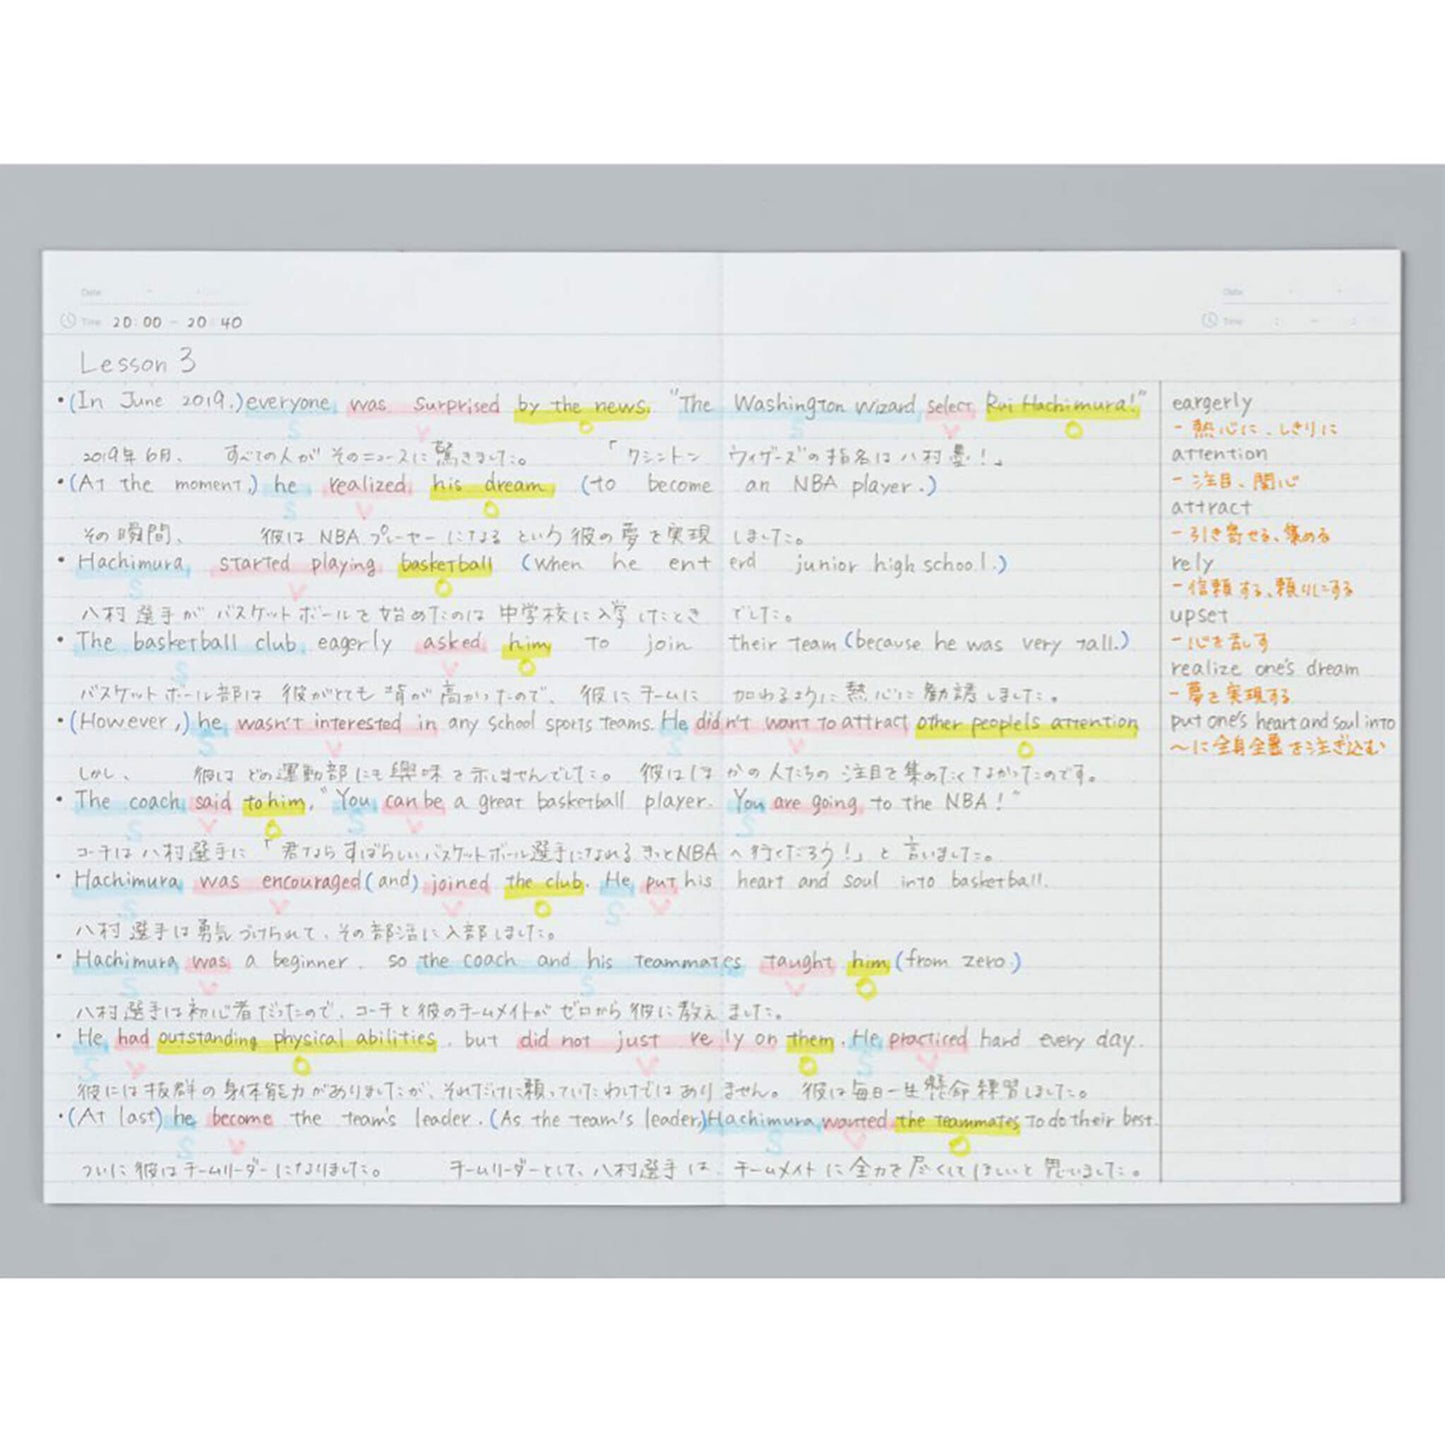 Date
Time 20:00 - 20:40
Date
Time : - :
Lesson 3
・(In June 2019,) everyone was surprised by the news. "The Washington Wizard select Rui Hachimura!"
S V O S V O
2019年6月、 すべての人が そのニュースに驚きました。 「ワシントン ウィザーズ"の指名は八村塁！」
・(At the moment,) he realized his dream (to become an NBA player.)
S V O
その瞬間、 彼は NBA プレーヤーになる という彼の夢を実現しました。
・Hachimura started playing basketball (when he enterd junior high school.)
S V O
八村選手が バスケットボールを始めたのは 中学校に入学したとき でした。
・The basketball club eagerly asked him to join their team (because he was very tall.)
S V O
バスケットボール部は 彼がとても背が高かったので、 彼にチームに 加わるように熱心に勧誘しました。
・(However,) he wasn't interested in any school sports teams. He didn't want to attract other people's attention
S V S V O
しかし、 彼は どの運動部にも興味を示しませんでした。 彼はほかの人たちの 注目を集めたくなかったのです。
・The coach said to him, "You can be a great basketball player. You are going to the NBA!"
S V O S V S V
コーチは八村選手に 「君なら すばらしいバスケットボール選手になれる きっとNBA へ行くだろう！」と 言いました。
・Hachimura was encouraged (and) joined the club. He put his heart and soul into basketball.
S V V O S V
八村選手は勇気づけられて、その部活に入部しました。
・Hachimura was a beginner, so the coach and his teammates taught him (from zero.)
S V S V O
八村選手は初心者だったので、コーチと彼のチームメイトが ゼロから 彼に教えました。
・He had outstanding physical abilities, but did not just rely on them. He practiced hard every day.
S V O V O S V
彼には抜群の身体能力がありましたが、それだけに頼っていたわけではありません。 彼は毎日一生懸命練習しました。
・(At last) he become the team's leader. (As the team's leader,) Hachimura wanted the teammates to do their best.
S V S V O
ついに彼はチームリーダーになりました。 チームリーダーとして、八村選手は、チームメイトに全力を尽くしてほしいと思いました。
eargerly
- 熱心に、しきりに
attention
- 注目、関心
attract
- 引き寄せる、集める
rely
- 信頼する、頼りにする
upset
- 心を乱す
realize one's dream
- 夢を実現する
put one's heart and soul into
〜に全身全霊を注ぎ込む